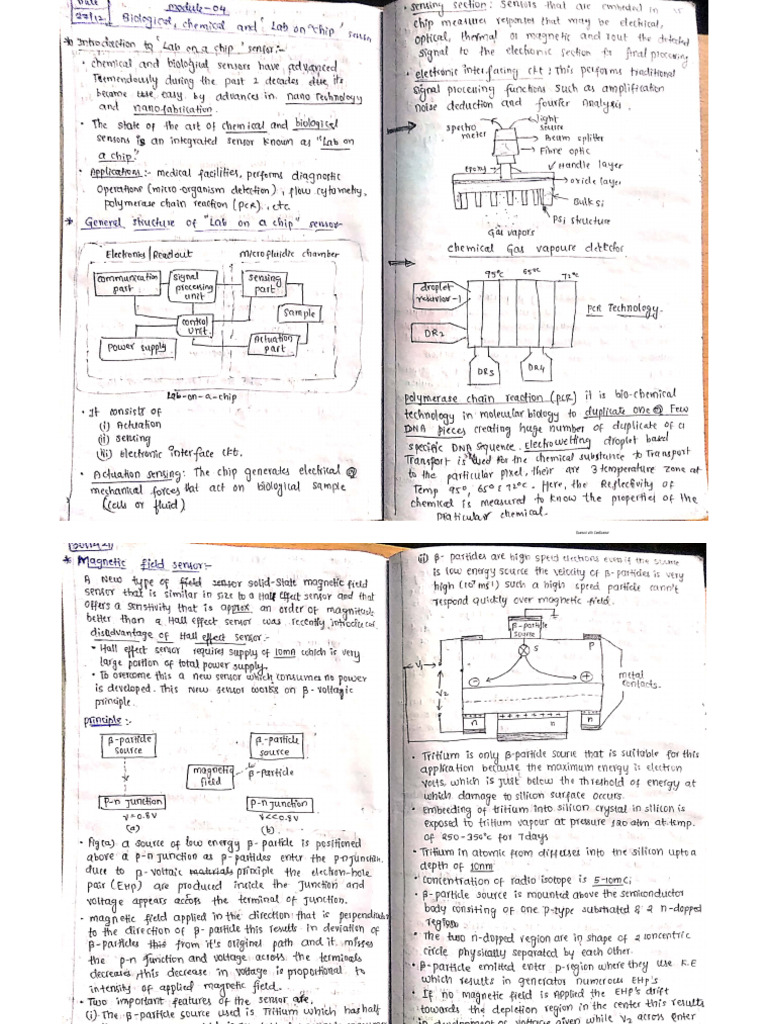 Date
27/12
Module-04
Biological, chemical and "Lab on chip" sensor
* Introduction to "Lab on a chip" sensor:-
• chemical and biological sensors have advanced
Tremendously during the past 2 decades due its
became use easy by advances in nano Technology
and nano fabrication.
• The state of the art of chemical and biological
sensors is an integrated sensor known as "Lab on
a chip."
• Applications:- medical facilities, performs diagnostic
Operations (micro-organism detection), flow cytometry,
polymerase chain reaction (PCR), etc
* General structure of "Lab on a chip" sensor-
Electronics/Readout
microfluidic chamber
communication part
signal processing unit
sensing part
sample
control unit
Power supply
Actuation part
Lab-on-a-chip
• It consists of
(i) Actuation
(ii) sensing
(iii) electronic interface ckt.
• Actuation sensing: The chip generates electrical @
mechanical forces that act on biological sample
(cells or fluid)
• sensing section: sensors that are embedded in
chip measures responses that may be electrical,
optical, thermal or magnetic and rout the detected
signal to the electronic section for final processing
• electronic interfacing ckt: This performs traditional
signal processing functions such as amplification
noise deduction and fourier Analysis.
spectro meter
light source
Beam splitter
Fibre optic
epoxy
Handle layer
oxide layer
Bulk Si
PSi structure
Gas vapors
chemical Gas vapoure detector
95°c
65°c
72°c
droplet reservior-1
DR2
DR3
DR4
PCR Technology.
polymerase chain reaction (PCR) it is bio-chemical
technology in molecular biology to duplicate one @ Few
DNA pieces creating huge number of duplicate of a
specific DNA sequence. electrowetting droplet based
Transport is used for the chemical substance to Transport
to the particular pixel, their are 3 temperature zone at
Temp 95°, 65° & 72°c. Here, the Reflectivity of
chemical is measured to know the properties of the
particular chemical.
* Magnetic field sensor:-
A New type of field sensor solid-state magnetic field
sensor that is similar in size to a Half effect sensor and that
offers a sensitivity that is approx an order of magnitude
better than a Hall effect sensor was recently introduced
disadvantage of Hall effect sensor:-
• Hall effect sensor requires supply of 10mA which is very
large portion of total power supply.
• To overcome this a new sensor which consumes no power
is developed. This new sensor works on β-voltaic
principle.
principle:-
β-particle source
β-particle source
magnetic field
β-particle
P-n junction
P-n junction
V=0.8V
V<<0.8V
(a)
(b)
• Fig(a) a source of low energy β-particle is positioned
above a p-n junction as β-particles enter the p-n junction
due to β-voltaic principle the electron-hole
pair (EHP) are produced inside the junction and
voltage appears across the terminal of junction.
• magnetic field applied in the direction that is perpendicular
to the direction of β-particle this results in deviation of
β-particles from it's original path and it misses
the p-n junction and voltage across the terminals
decreases, this decrease in voltage is proportional to
intensity of applied magnetic field.
• Two important features of the sensor are,
(i) The β-particle source used is Tritium which has half
(ii) β-particles are high speed electrons even if the source
is low energy source the velocity of β-particles is very
high such a high speed particle cann't
respond quickly over magnetic field.
β-particle source
S
P
V1
V2
metal contacts.
n
n
n
• Tritium is only β-particle source that is suitable for this
application because the maximum energy is electron
volts, which is just below the threshold of energy at
which damage to silicon surface occurs.
• embedding of tritium into silicon crystal in silicon is
exposed to tritium vapour at pressure 120 atm at temp.
of 250-350°c for 7 days
• Tritium in atomic from diffuses into the silicon upto a
depth of 10nm
• concentration of radio isotope is
• β-particle source is mounted above the semiconductor
body consiting of one p-type substrated & 2 n-dopped
region
• The two n-dopped region are in shape of 2 concentric
circle physically separated by each other.
• β-particle emitted enter p-region where they use K.E
which results in generator numerous EHP's
• If no magnetic field is applied the EHP's drift
towards the depletion region in the center this results
in development of voltage given while V2 across enter